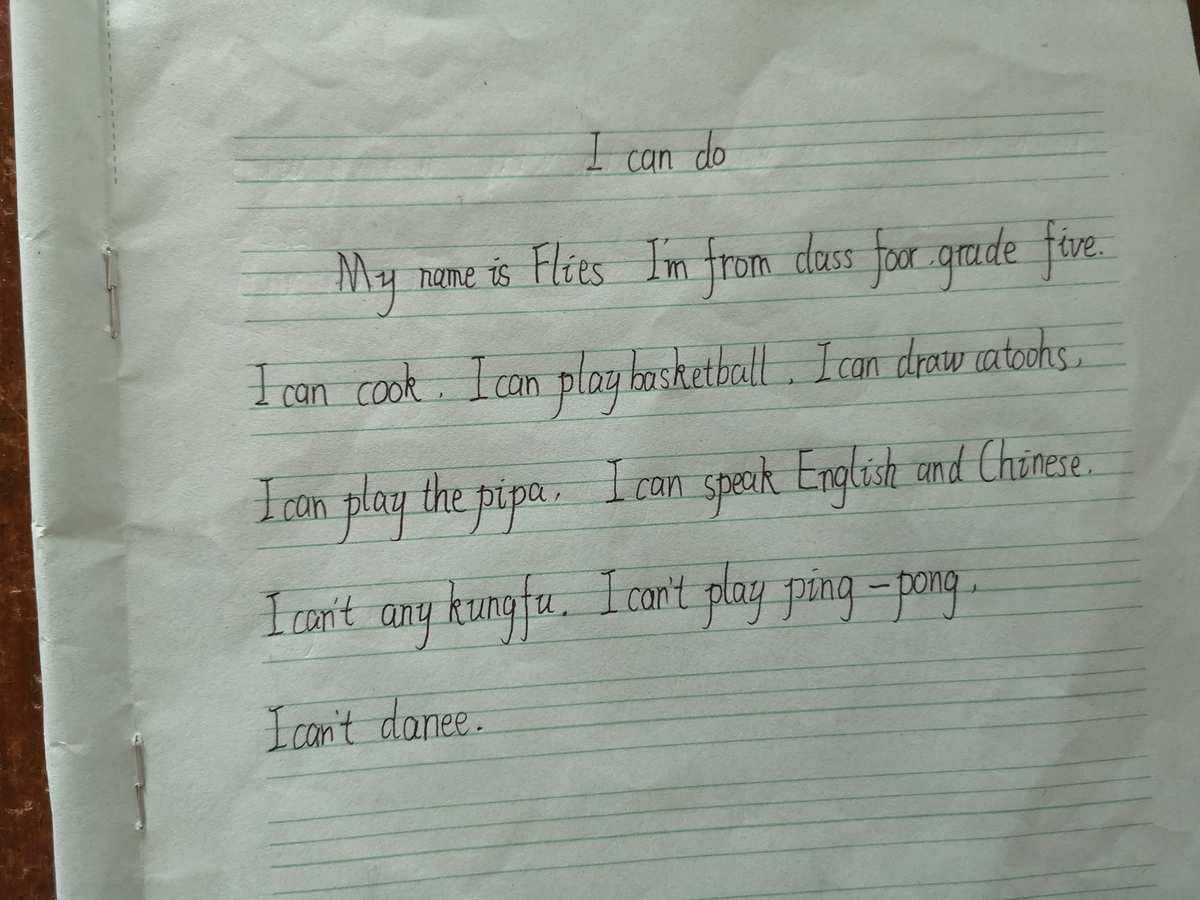 I can do
My name is Flies I'm from class foor.grade five.
I can cook. I can play basketball. I can draw catoohs.
I can play the pipa. I can speak English and Chinese.
I can't any kungfu. I can't play ping-pong.
I can't danee.